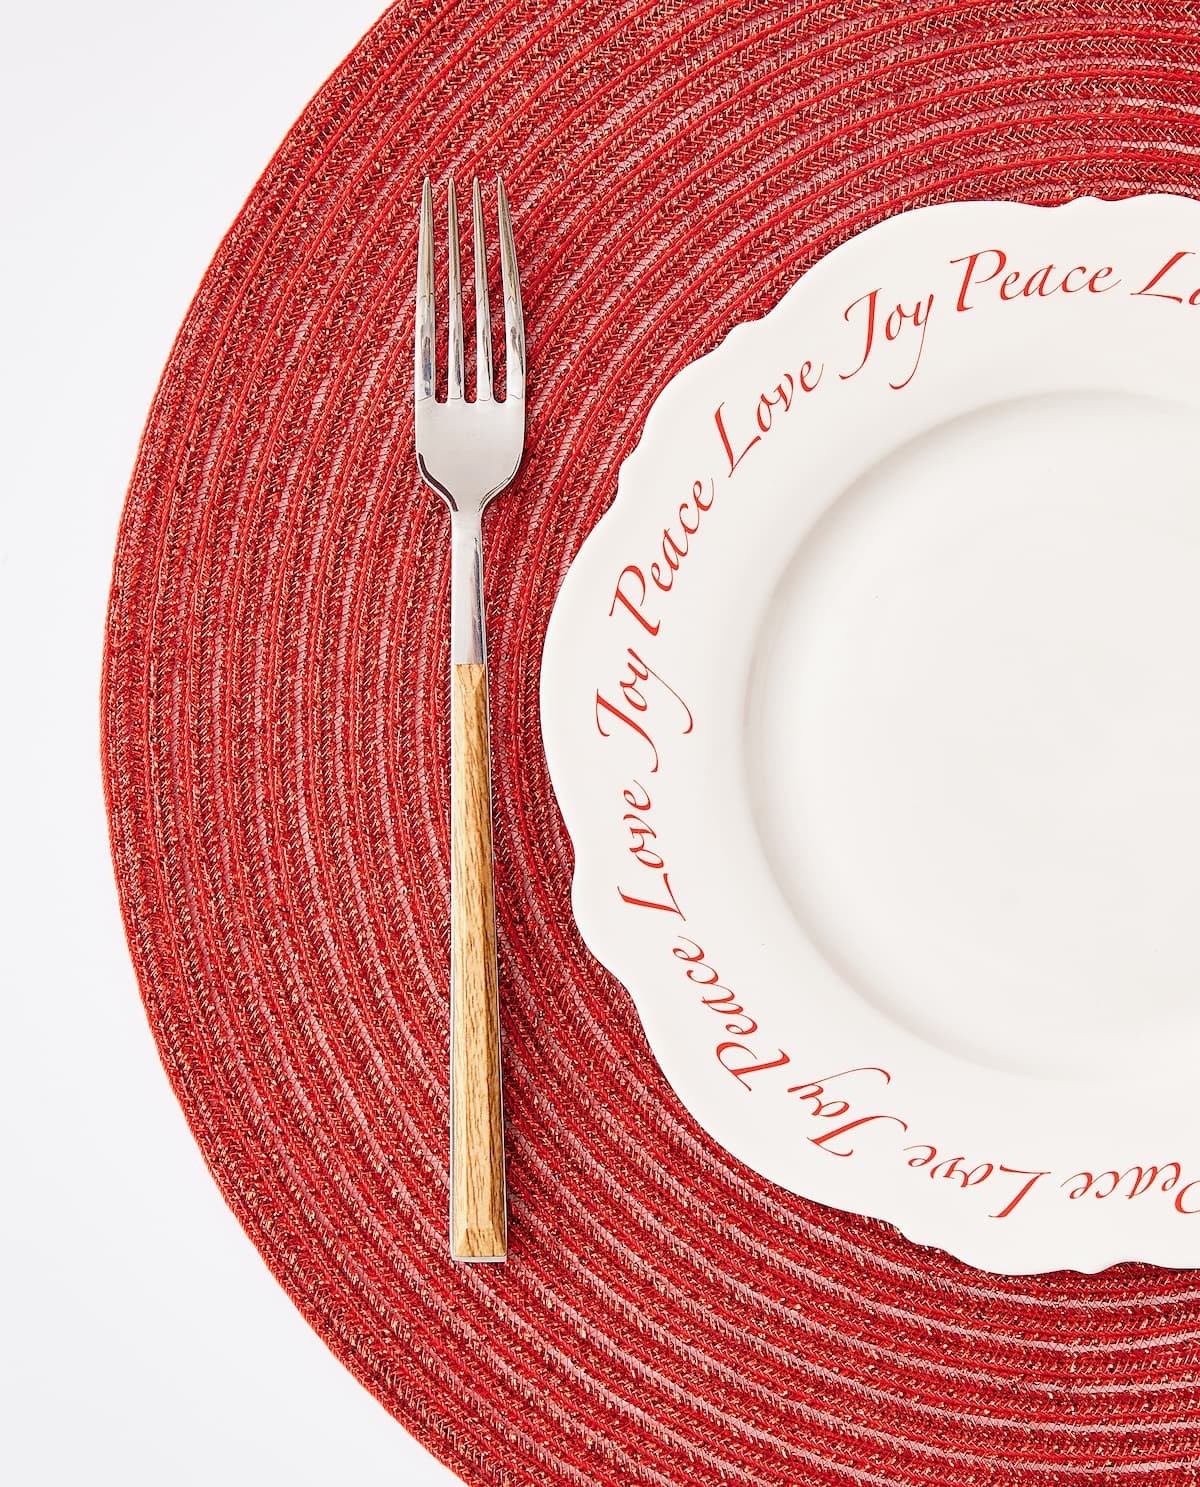 Peace Love Joy Peace Love Joy Peace Love Joy Peace